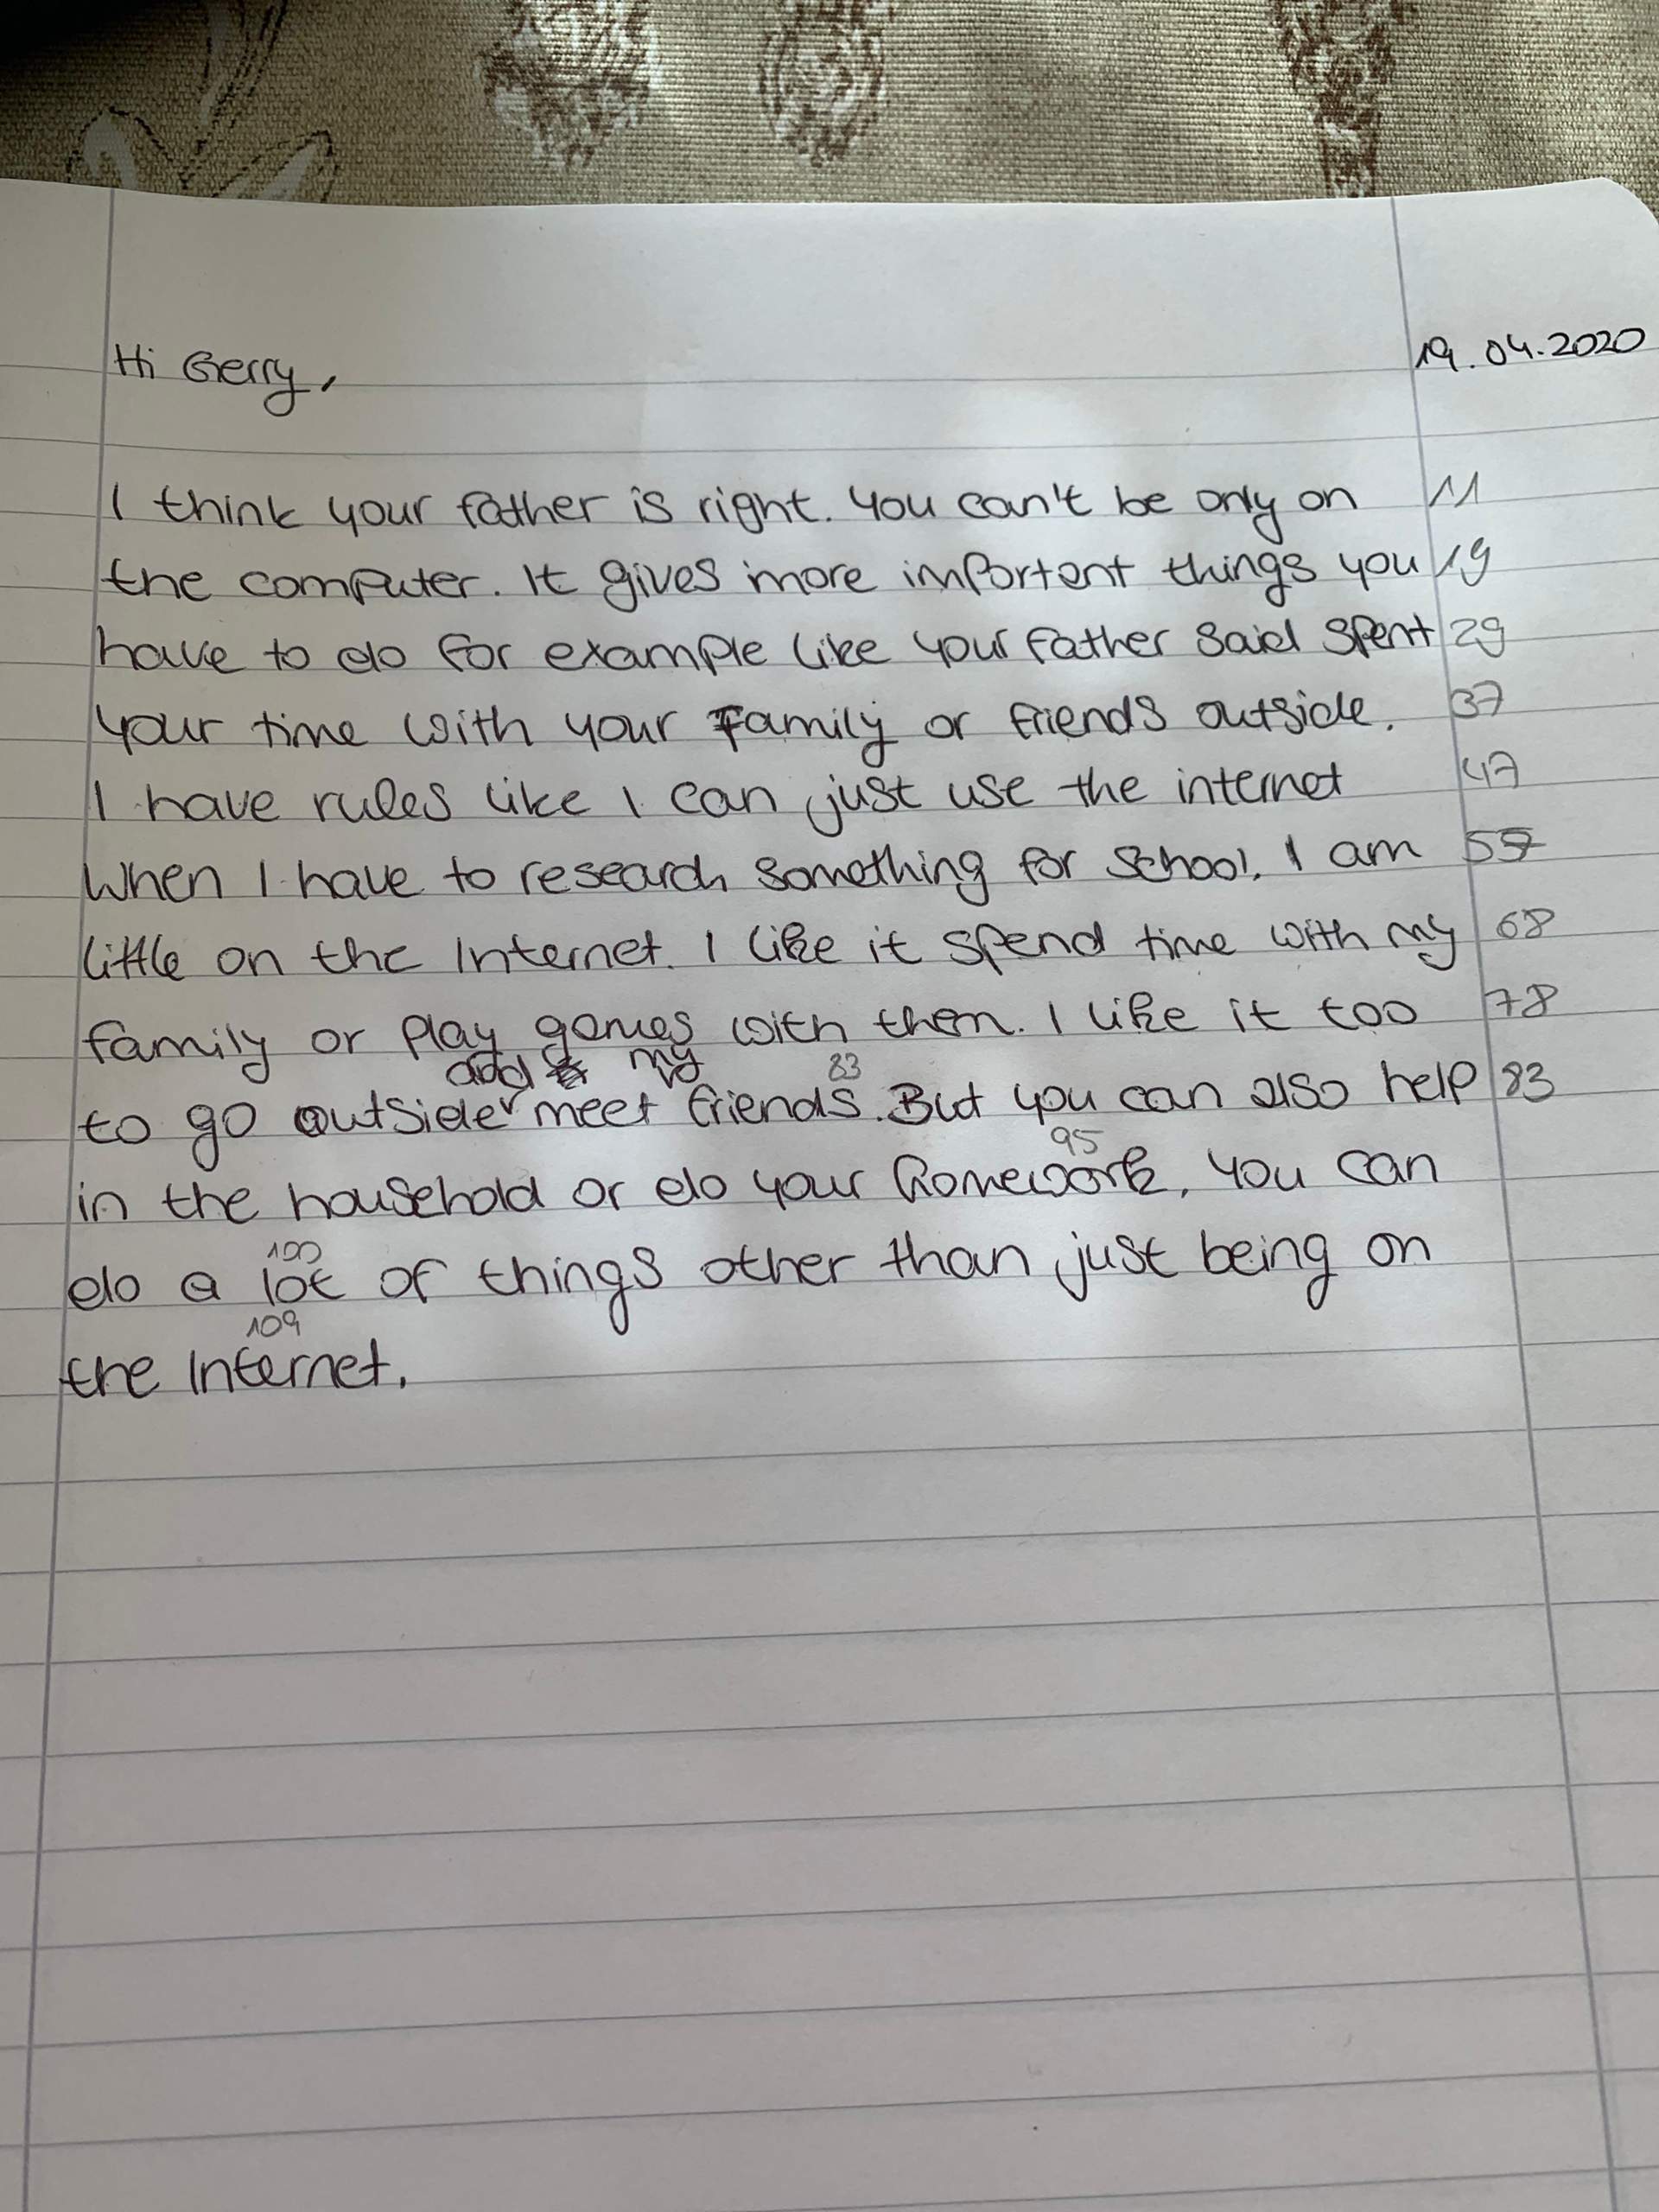 Hi Gerry, 19.04.2020
I think your father is right. You can't be only on 11
the computer. It gives more importent things you 19
have to do for example like your father said spent 29
your time with your family or friends outside. 37
I have rules like I can just use the internet 47
When I have to research something for school. I am 57
little on the Internet. I like it spend time with my 68
family or play games with them. I like it too 78
and my 83
to go outside meet friends. But you can also help 83
95
in the household or do your homework. You can
100
do a lot of things other than just being on
109
the Internet.